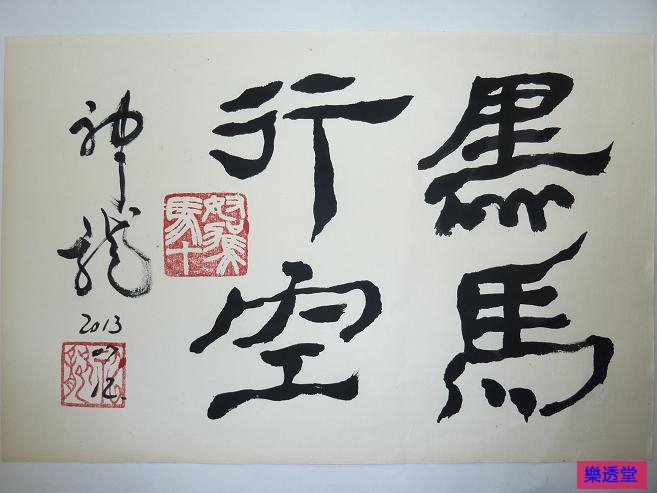 黑馬
行空
神龍
2013
樂透堂